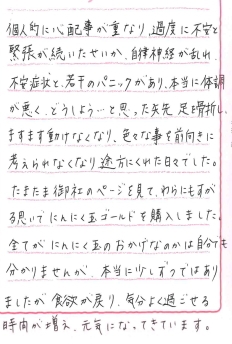 個人的に心配事が重なり、過度に不安と
緊張が続いたせいか、自律神経が乱れ、
不安症状と、若干のパニックがあり、本当に体調
が悪く、どうしよう…と思った矢先、足を骨折し、
ますます動けなくなり、色々な事を前向きに
考えられなくなり途方にくれた日々でした。
たまたま御社のページを見て、わらにもすが
る思いでにんにく玉ゴールドを購入しました。
全てがにんにく玉のおかげなのかは自分でも
分かりませんが、本当に少しずつではあり
ましたが食欲が戻り、気分よく過ごせる
時間が増え、元気になってきています。